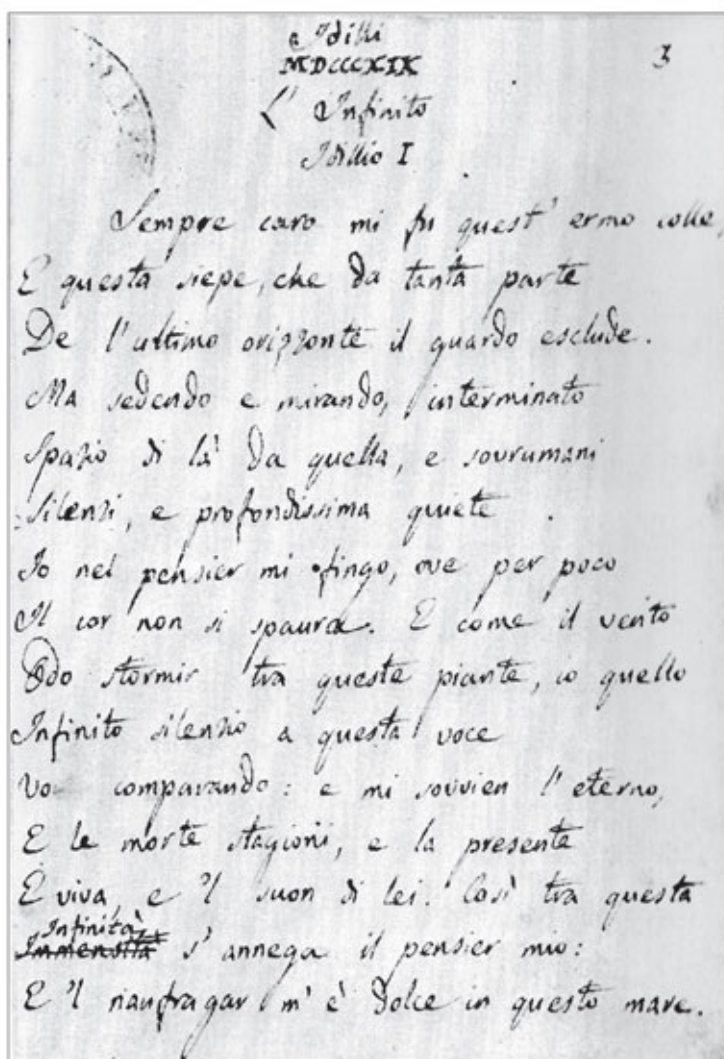 Idilli
MDCCCXIX
3
L' Infinito
Idillio I
Sempre caro mi fu quest' ermo colle,
E questa siepe, che da tanta parte
De l'ultimo orizzonte il guardo esclude.
Ma sedendo e mirando, interminato
Spazio di là da quella, e sovrumani
Silenzi, e profondissima quiete
Io nel pensier mi fingo, ove per poco
Il cor non si spaura. E come il vento
Odo stormir tra queste piante, io quello
Infinito silenzio a questa voce
Vo comparando: e mi sovvien l'eterno,
E le morte stagioni, e la presente
E viva, e 'l suon di lei. Così tra questa
Infinità
Immensità s'annega il pensier mio:
E 'l naufragar m' è dolce in questo mare.